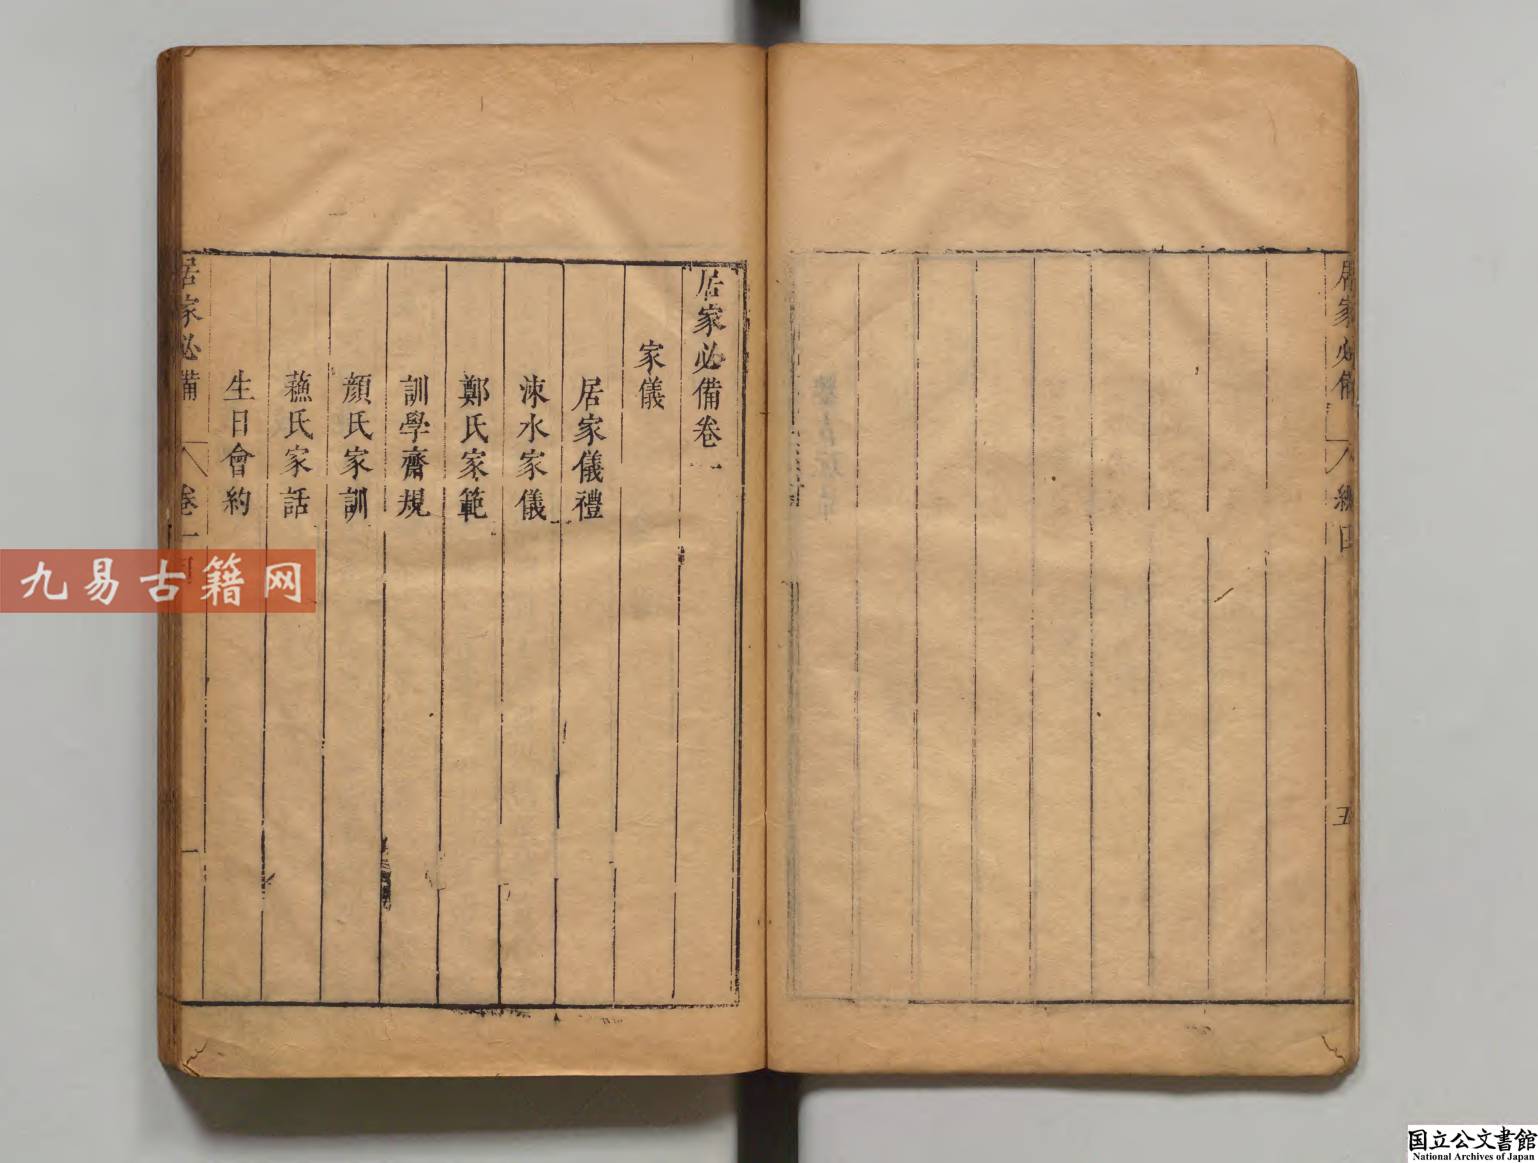 居家必備
總目
五
居家必備卷一
家儀
居家儀禮
涑水家儀
鄭氏家範
訓學齋規
顏氏家訓
蘓氏家話
生日會約
居家必備
卷一
一
九易古籍网
国立公文書館
National Archives of Japan